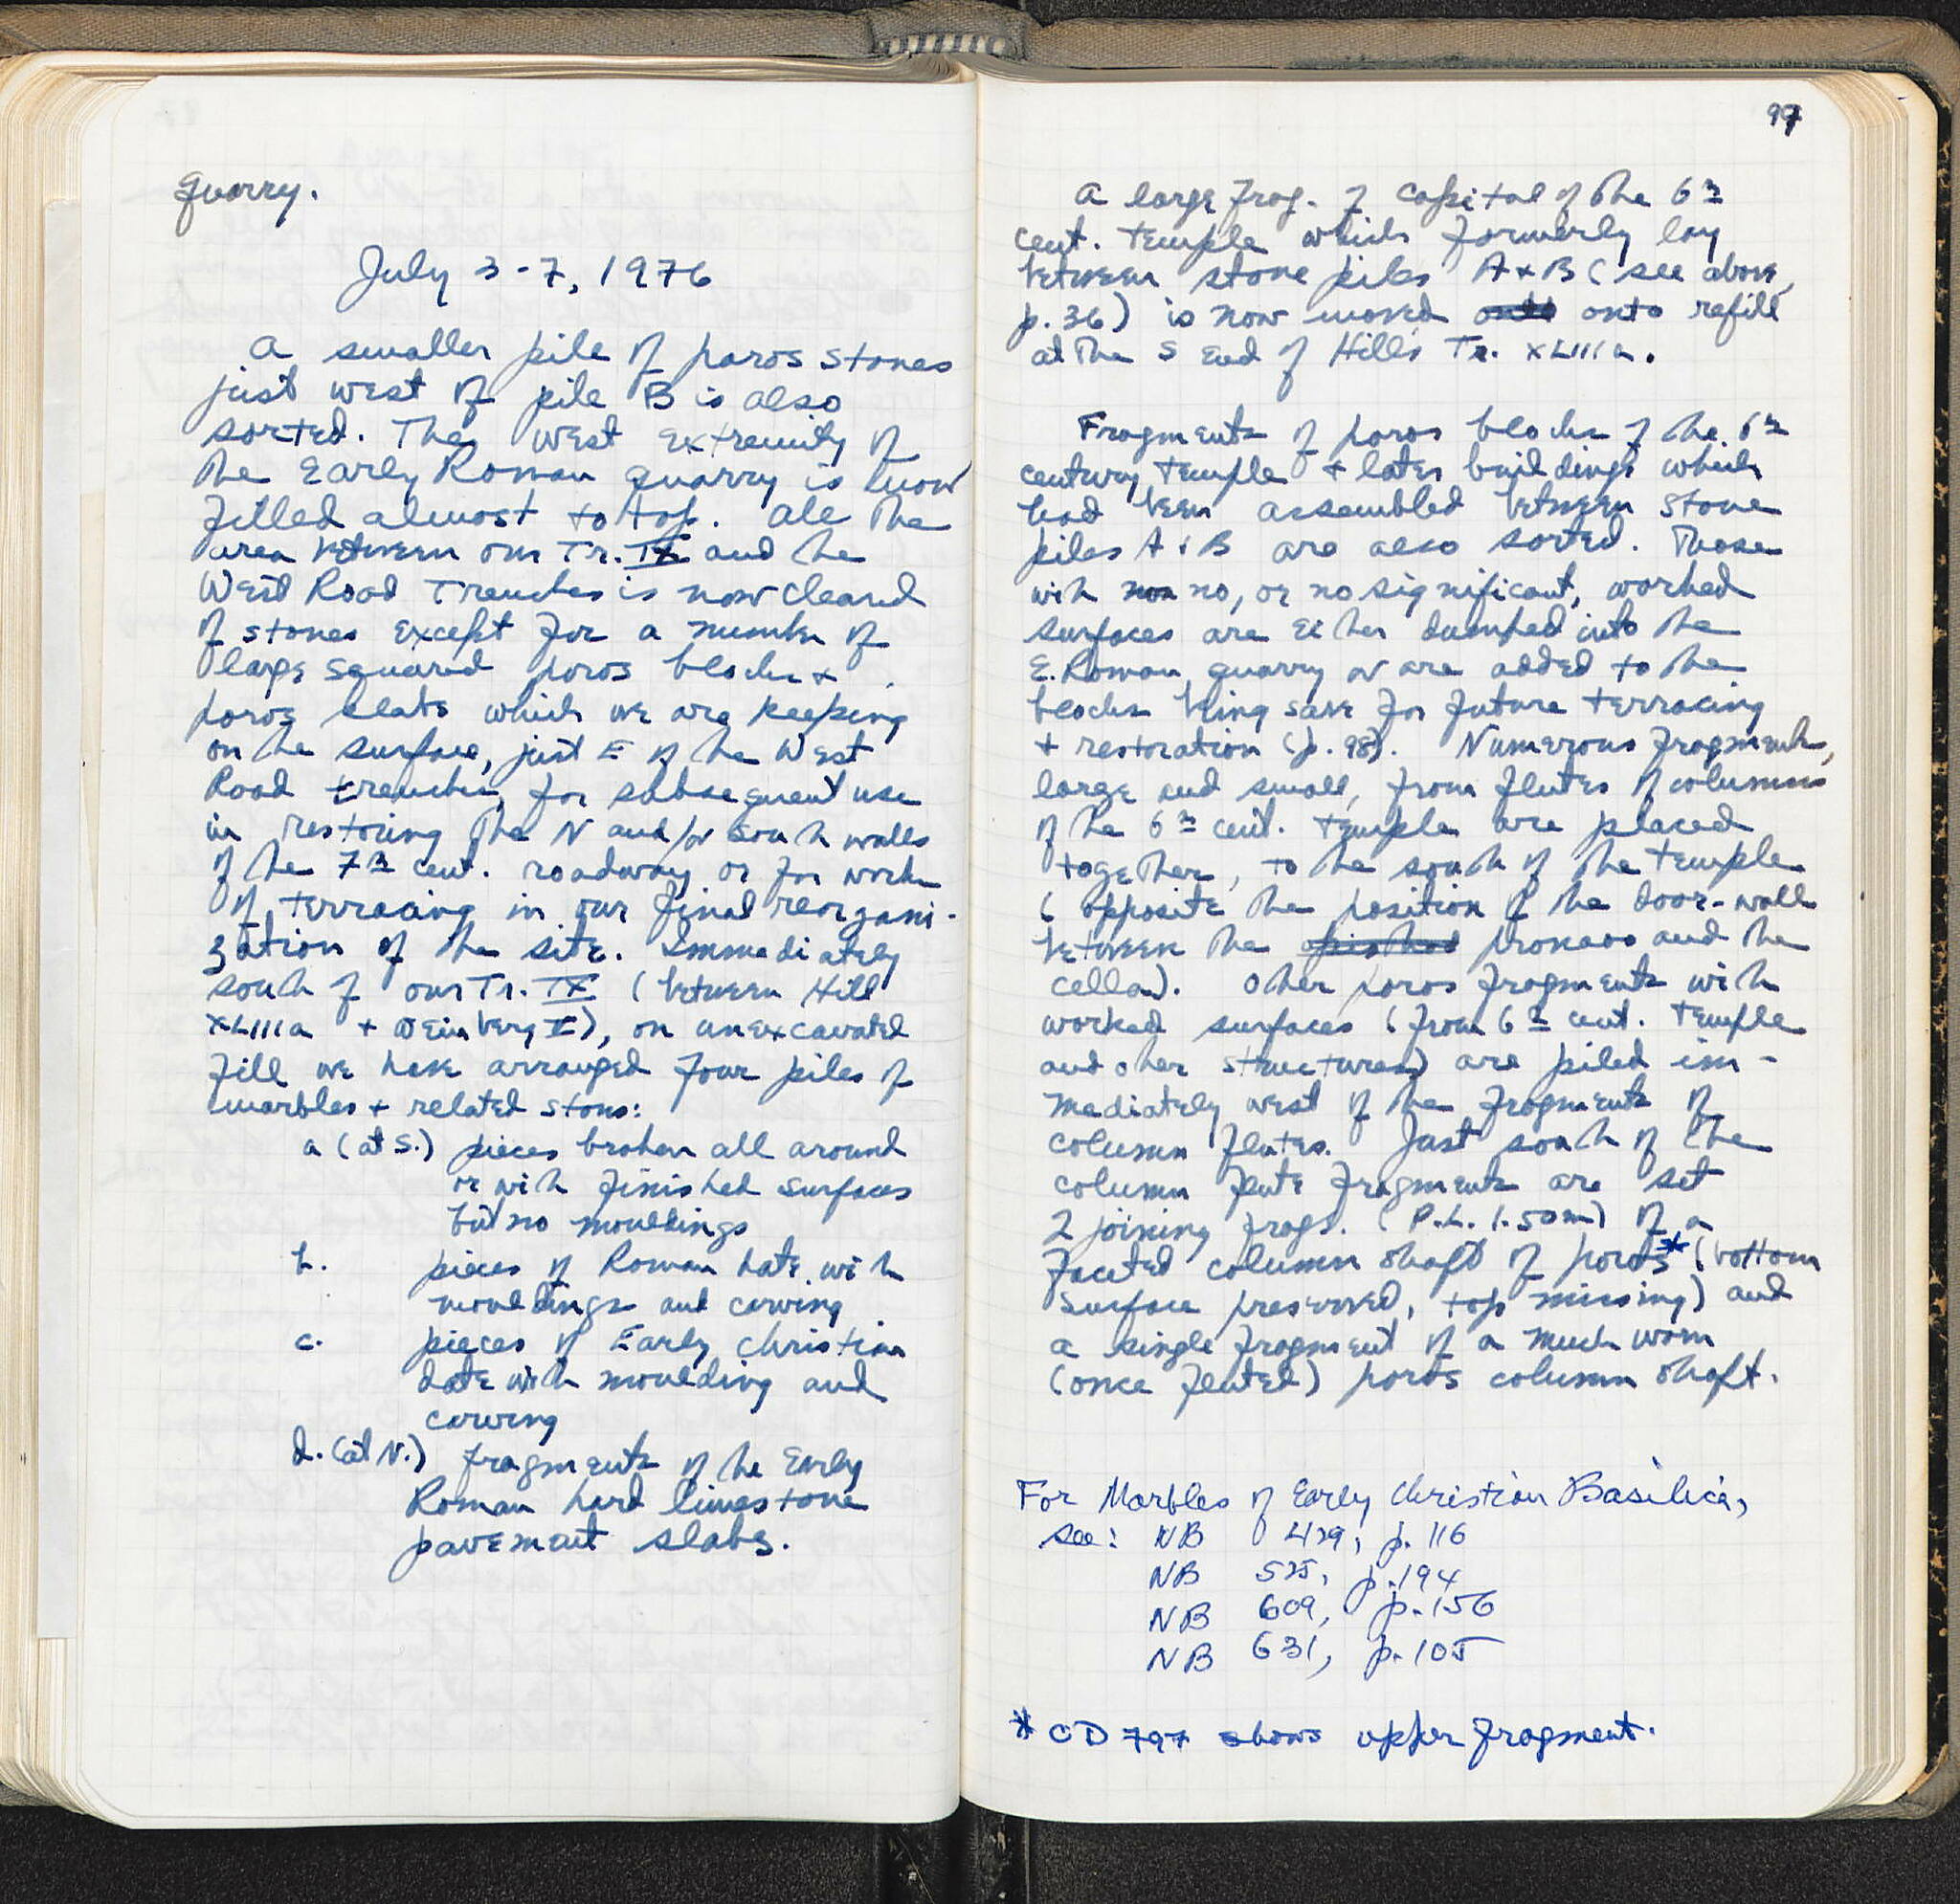 quarry.
July 3-7, 1976
A smaller pile of poros stones
just west of pile B is also
sorted. The west extremity of
the Early Roman quarry is now
filled almost to top. All the
area between our Tr. IX and the
West Road Trenches is now cleared
of stones except for a number of
large squared poros blocks +
poros slabs which we are keeping
on the surface, just E of the West
Road trenches, for subsequent use
in restoring the N and/or south walls
of the 7th cent. roadway or for work
of terracing in our final reorgani-
zation of the site. Immediately
south of our Tr. IX (between Hill
XLIIIa + Weinberg I), on unexcavated
fill we have arranged four piles of
marbles + related stones:
a (at S.) pieces broken all around
or with finished surfaces
but no mouldings
b. pieces of Roman date with
mouldings and carving
c. pieces of Early Christian
date with moulding and
carving
d. (at N.) fragments of the Early
Roman hard limestone
pavement slabs.
97
A large frag. of capital of the 6th
cent. temple which formerly lay
between stone piles A + B (see above,
p. 36) is now moved onto refill
at the S end of Hill's Tr. XLIIIa.
Fragments of poros blocks of the 6th
century temple + later buildings which
had been assembled between stone
piles A + B are also sorted. Those
with no, or no significant, worked
surfaces are either dumped into the
E. Roman quarry or are added to the
blocks being save for future terracing
+ restoration (p. 98). Numerous fragments,
large and small, from flutes of columns
of the 6th cent. temple are placed
together, to the south of the temple
(opposite the position of the door-wall
between the pronaos and the
cella). Other poros fragments with
worked surfaces (from 6th cent. temple
and other structures) are piled im-
mediately west of the fragments of
column flutes. Just south of the
column flute fragments are set
2 joining frags. (P.L. 1.50 m) of a
faceted column shaft of poros* (bottom
surface preserved, top missing) and
a single fragment of a much worn
(once fluted) poros column shaft.
For Marbles of Early Christian Basilica,
see: NB 429, p. 116
NB 525, p. 194
NB 609, p. 156
NB 631, p. 105
* CD 797 shows upper fragment.